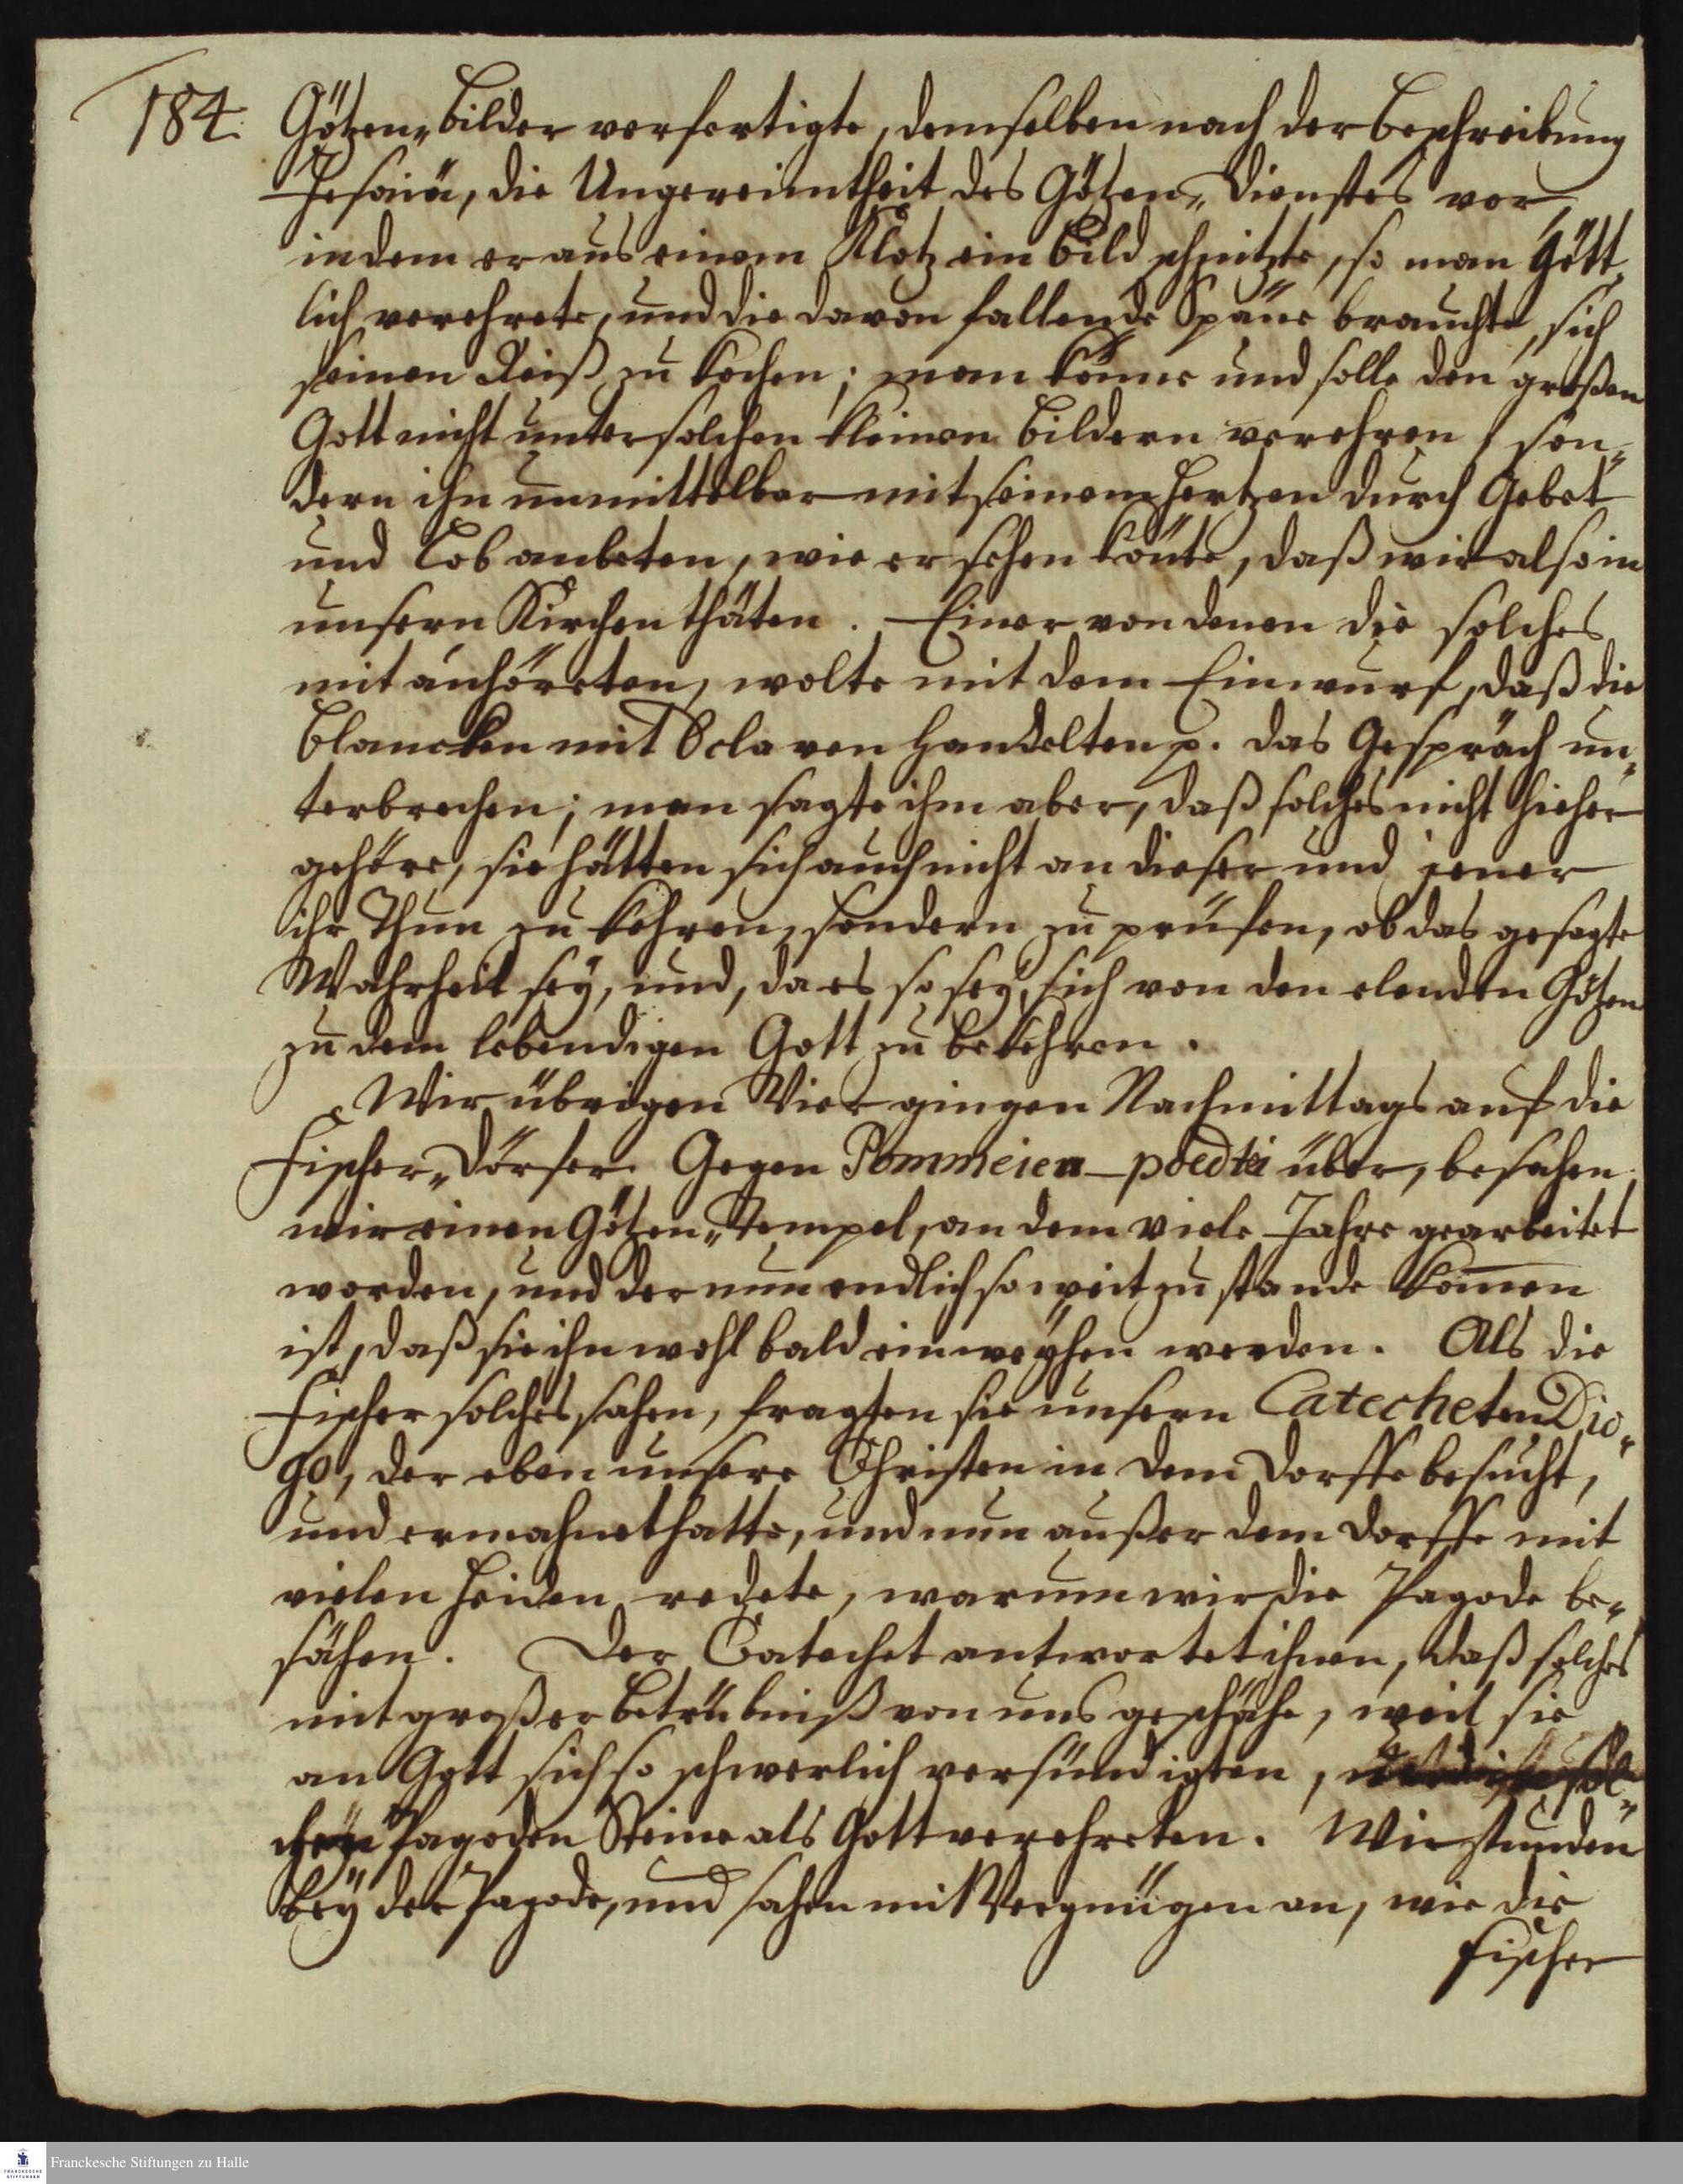 184.
Götzen„Bilder verfertigte, demselben nach der Beschreibung
Jesaiä, die Ungereimtheit des Götzen„Dienstes vor,
indem er aus einem Klotz ein Bild schnitzte, so man Gött„
lich verehrete, und die davon fallende Späne brauchte, sich
seinen Reiß zu kochen; man könne und solle den großen
Gott nicht unter solchen kleinen Bildern verehren, son„
dern ihn unmittelbar mit seinem Hertzen durch Gebet
und Lob anbeten, wie er sehen könte, daß wir also in
unsern Kirchen thäten. Einer von denen die solches
mit anhöreten, wolte mit dem Einwurf, daß die
Blancken mit Sclaven handelten p. das Gespräch un„
terbrechen; man sagte ihm aber, daß solches nicht hieher
gehöre, sie hätten sich auch nicht an dieser und jener
ihr Thun zu kehren, sondern zu prüfen, ob das gesagte
Wahrheit sey, und, da es so sey, sich von den elenden Götzen
zu dem lebendigen Gott zu bekehren.
Wir übrigen Vier gingen Nachmittags auf die
Fischer„Dörfer. Gegen Pommeien-poedtei über, besahen
wir einen Götzen„Tempel, an dem viele Jahre gearbeitet
worden, und der nun endlich so weit zu stande kom̅en
ist, daß sie ihn wohl bald einweyhen werden. Als die
Fischer solches sahen, fragten sie unsern Catecheten Dio„
go, der eben unsere Christen in dem Dorffe besucht,
und ermahnet hatte, und nun außer dem Dorffe mit
vielen Heiden redete, warum wir die Pagode be„
sähen. Der Catechet antwortet ihnen, daß solches
mit großer Betrübniß von uns geschähe, weil sie
an Gott sich so schwerlich versündigten, sol„
chen Pagoden Steine als Gott verehreten. Wir stunden
bey der Pagode, und sahen mit Vergnügen an, wie die
Fischer
Franckesche Stiftungen zu Halle
FRANCKESCHE
STIFTUNGEN